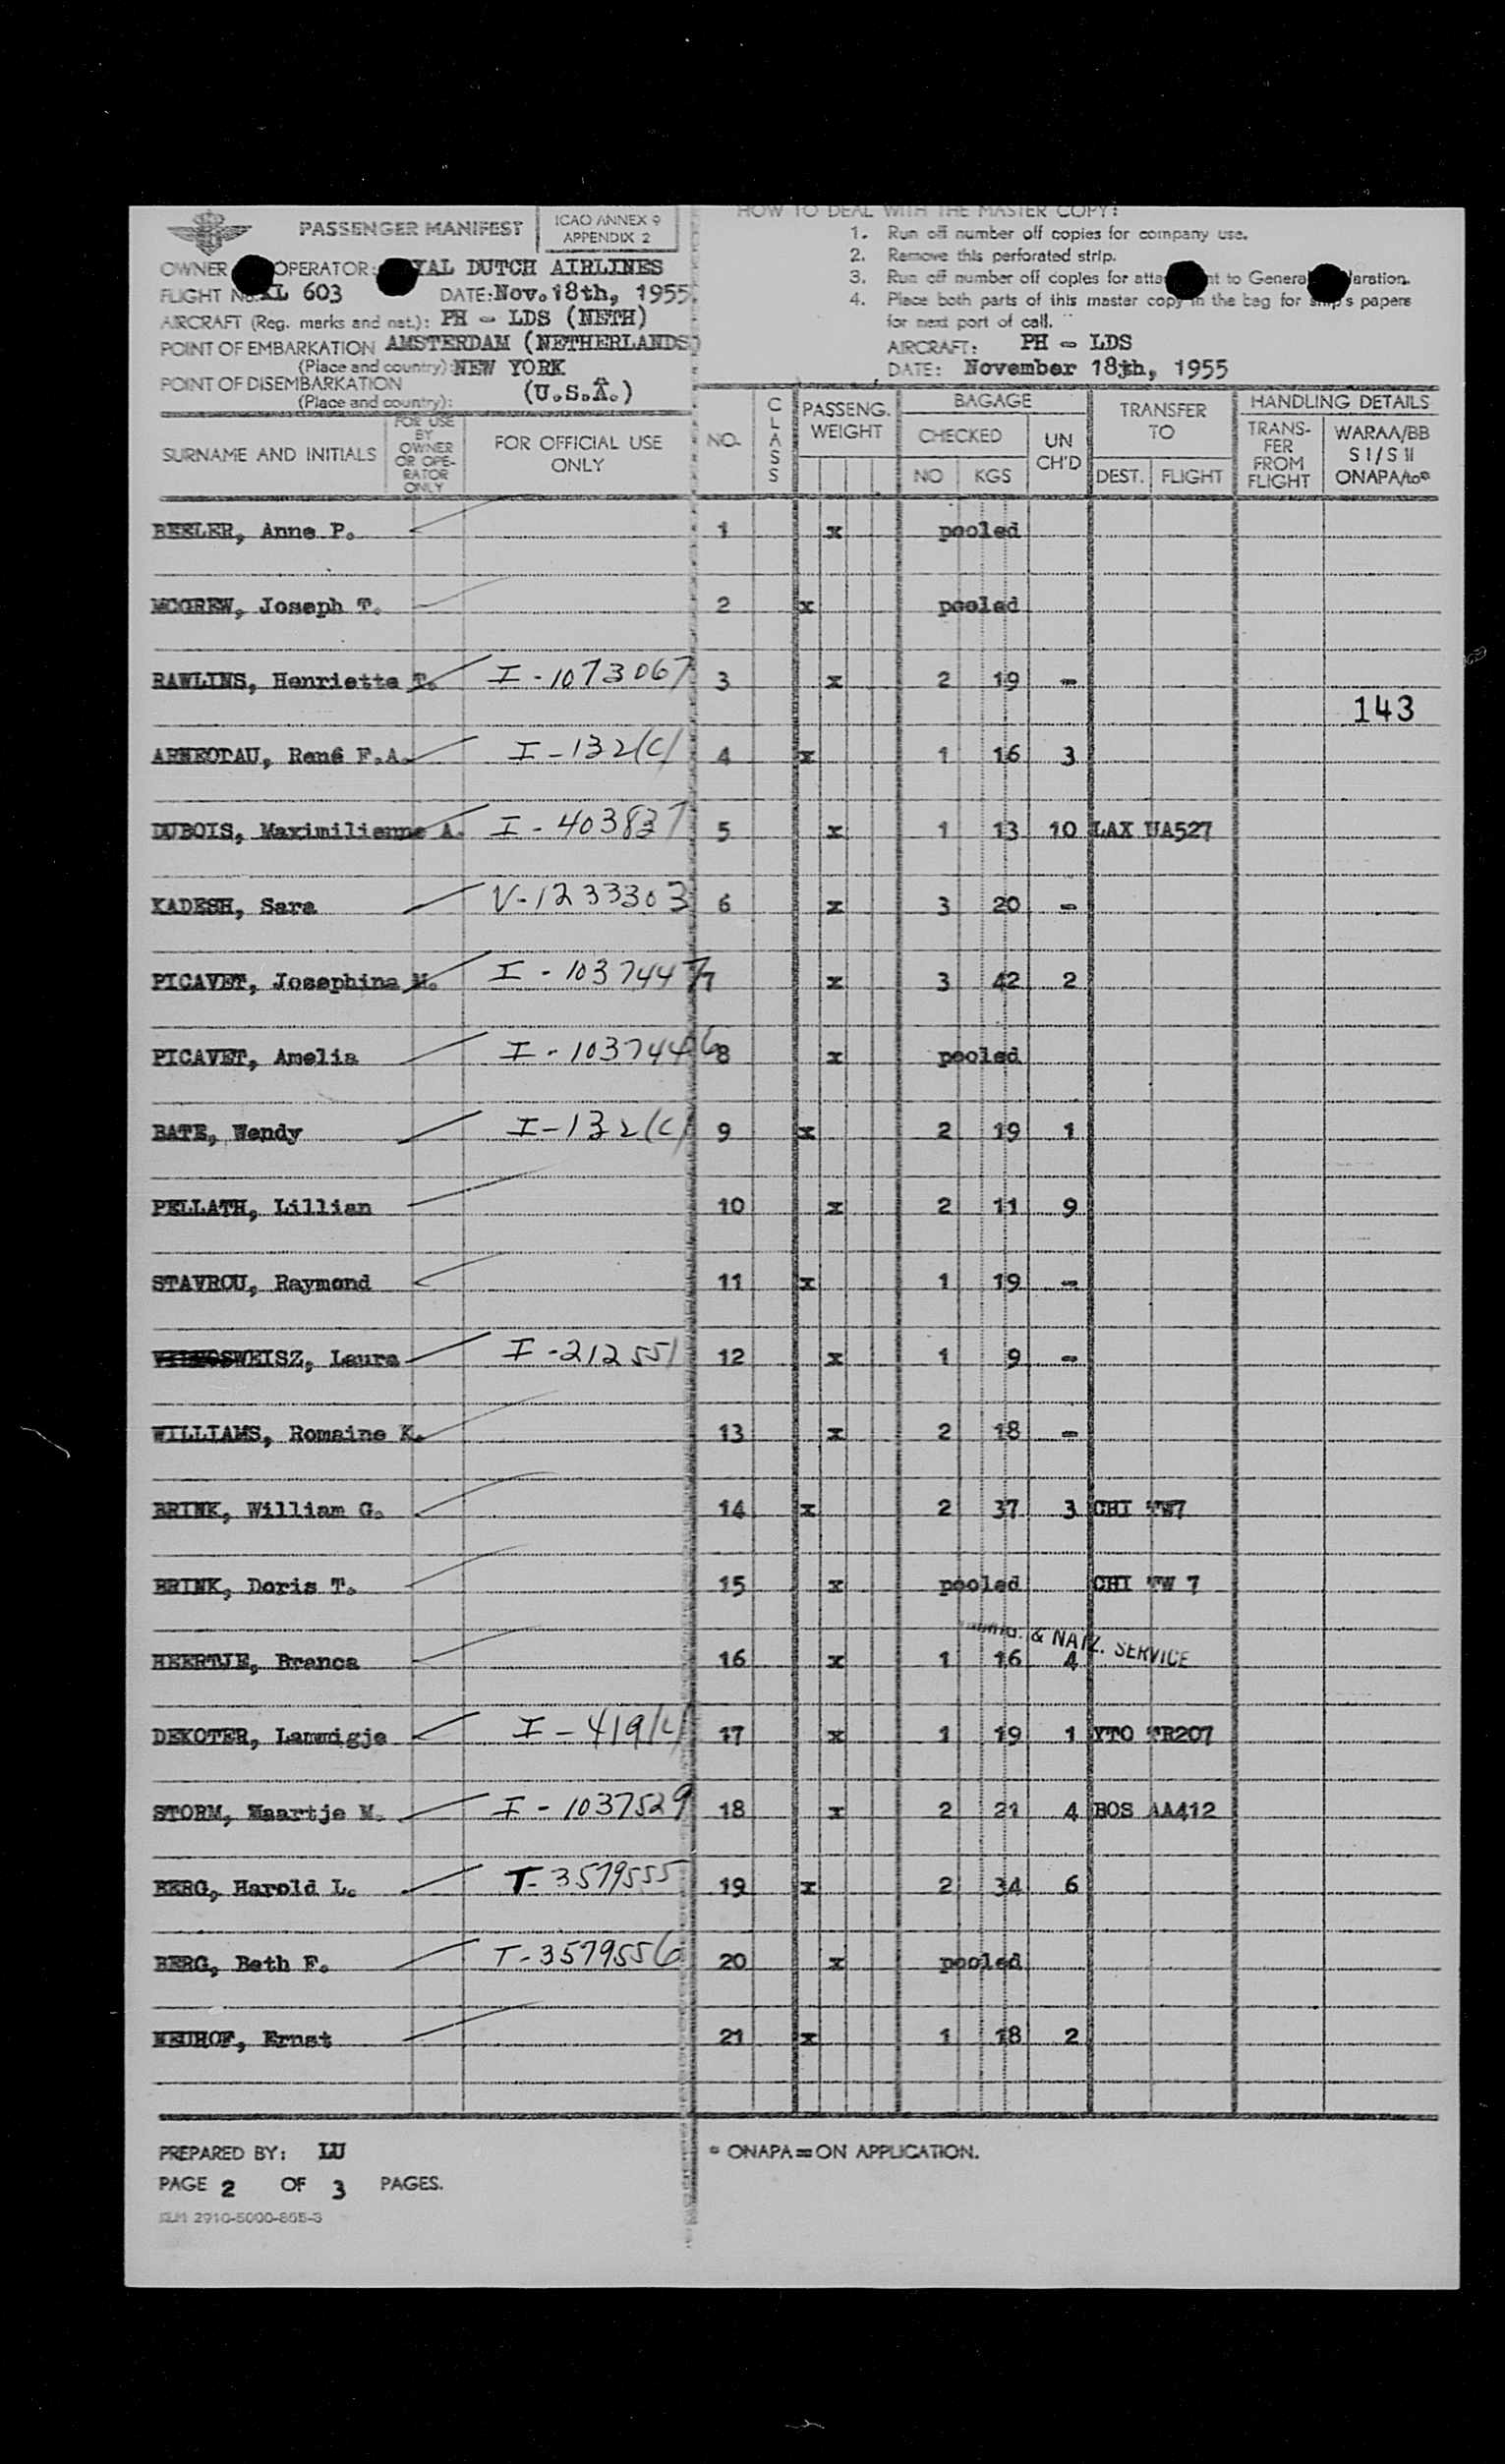 PASSENGER MANIFEST
ICAO ANNEX 9
APPENDIX 2
OWNER OPERATOR: YAL DUTCH AIRLINES
FLIGHT No. KL 603 DATE: Nov. 18th, 1955.
AIRCRAFT (Reg. marks and nat.): PH - LDS (NETH)
POINT OF EMBARKATION AMSTERDAM (NETHERLANDS)
(Place and country): NEW YORK
POINT OF DISEMBARKATION (U.S.A.)
(Place and country):
HOW TO DEAL WITH THE MASTER COPY:
1. Run off number off copies for company use.
2. Remove this perforated strip.
3. Run off number off copies for atta nt to General laration.
4. Place both parts of this master copy in the bag for ship's papers
for next port of call.
AIRCRAFT: PH - LDS
DATE: November 18th, 1955
SURNAME AND INITIALS
FOR USE BY OWNER OR OPE-RATOR ONLY
FOR OFFICIAL USE ONLY
NO.
CLASS
PASSENG. WEIGHT
BAGAGE
CHECKED
NO KGS
UN CH'D
TRANSFER TO
DEST. FLIGHT
HANDLING DETAILS
TRANS-FER FROM FLIGHT
WARAA/BB S I / S II ONAPA/to*
BEELER, Anne P. 1 x pooled
MCGREW, Joseph T. 2 x pooled
RAWLINS, Henriette T. I-1073067 3 x 2 19 -
143
René F.A. I-132(C) 4 x 1 16 3
DUBOIS, Maximilienne A. I-403837 5 x 1 13 10 LAX UA527
KADESH, Sara V-1233303 6 x 3 20 -
PICAVET, Josephina M. I-1037447 7 x 3 42 2
PICAVET, Amelia I-1037446 8 x pooled
BATE, Wendy I-132(C) 9 x 2 19 1
PELLATH, Lillian 10 x 2 11 9
STAVROU, Raymond 11 x 1 19 -
WEISZ, Laura I-212551 12 x 1 9 -
WILLIAMS, Romaine K. 13 x 2 18 -
BRINK, William G. 14 x 2 37 3 CHI TW7
BRINK, Doris T. 15 x pooled CHI TW 7
& NATZ. SERVICE
HEERTJE, Branca 16 x 1 16 4
DEKOTER, Lammigje I-419(C) 17 x 1 19 1 YTO TR207
STORM, Maartje M. I-1037529 18 x 2 21 4 BOS AA412
BERG, Harold L. T-3579555 19 x 2 34 6
BERG, Beth F. T-3579556 20 x pooled
NEUHOF, Ernst 21 x 1 18 2
PREPARED BY: LU
* ONAPA = ON APPLICATION.
PAGE 2 OF 3 PAGES.
KLM 2910-5000-855-3